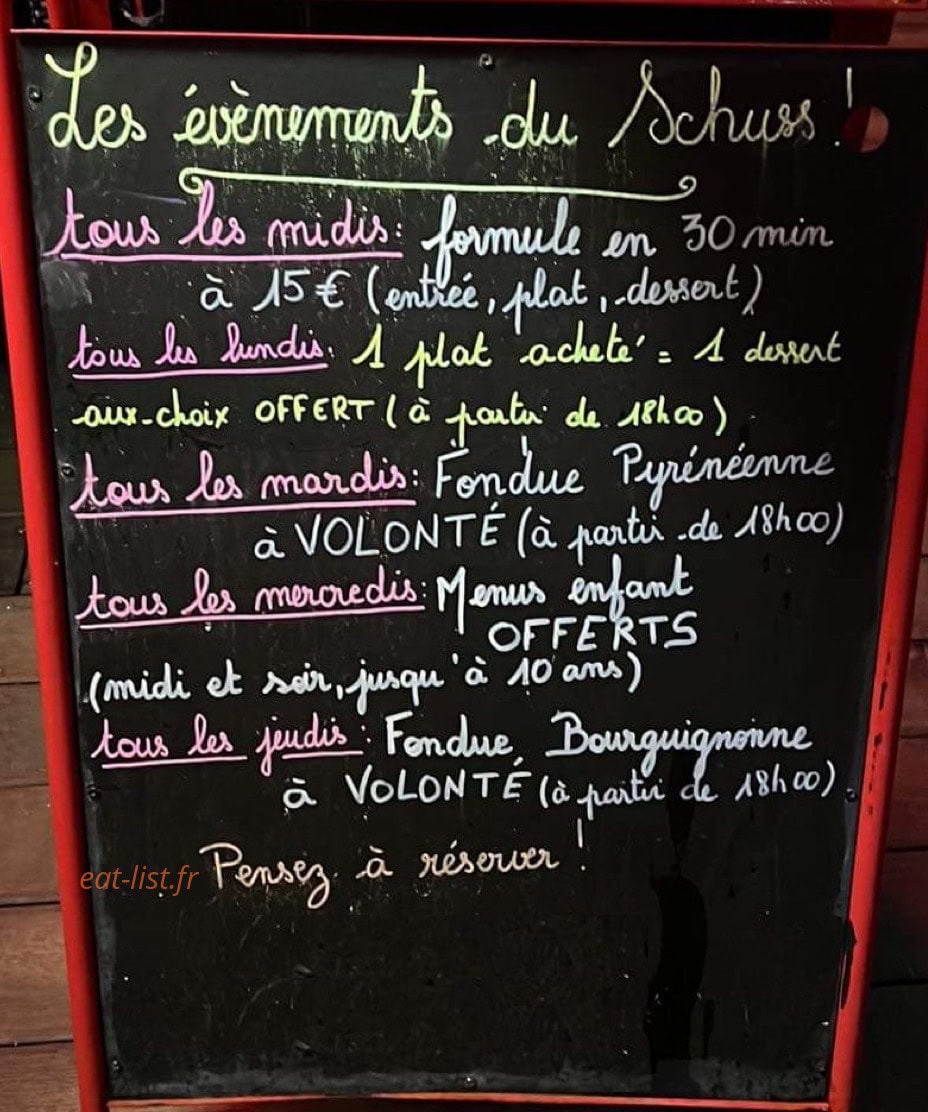 Les évènements du Schuss !
tous les midis : formule en 30 min
à 15 € (entrée, plat, dessert)
tous les lundis : 1 plat acheté = 1 dessert
aux choix OFFERT (à partir de 18h00)
tous les mardis : Fondue Pyrénéenne
à VOLONTÉ (à partir de 18h00)
tous les mercredis : Menus enfant
OFFERTS
(midi et soir, jusqu'à 10 ans)
tous les jeudis : Fondue Bourguignonne
à VOLONTÉ (à partir de 18h00)
Pensez à réserver !
eat-list.fr